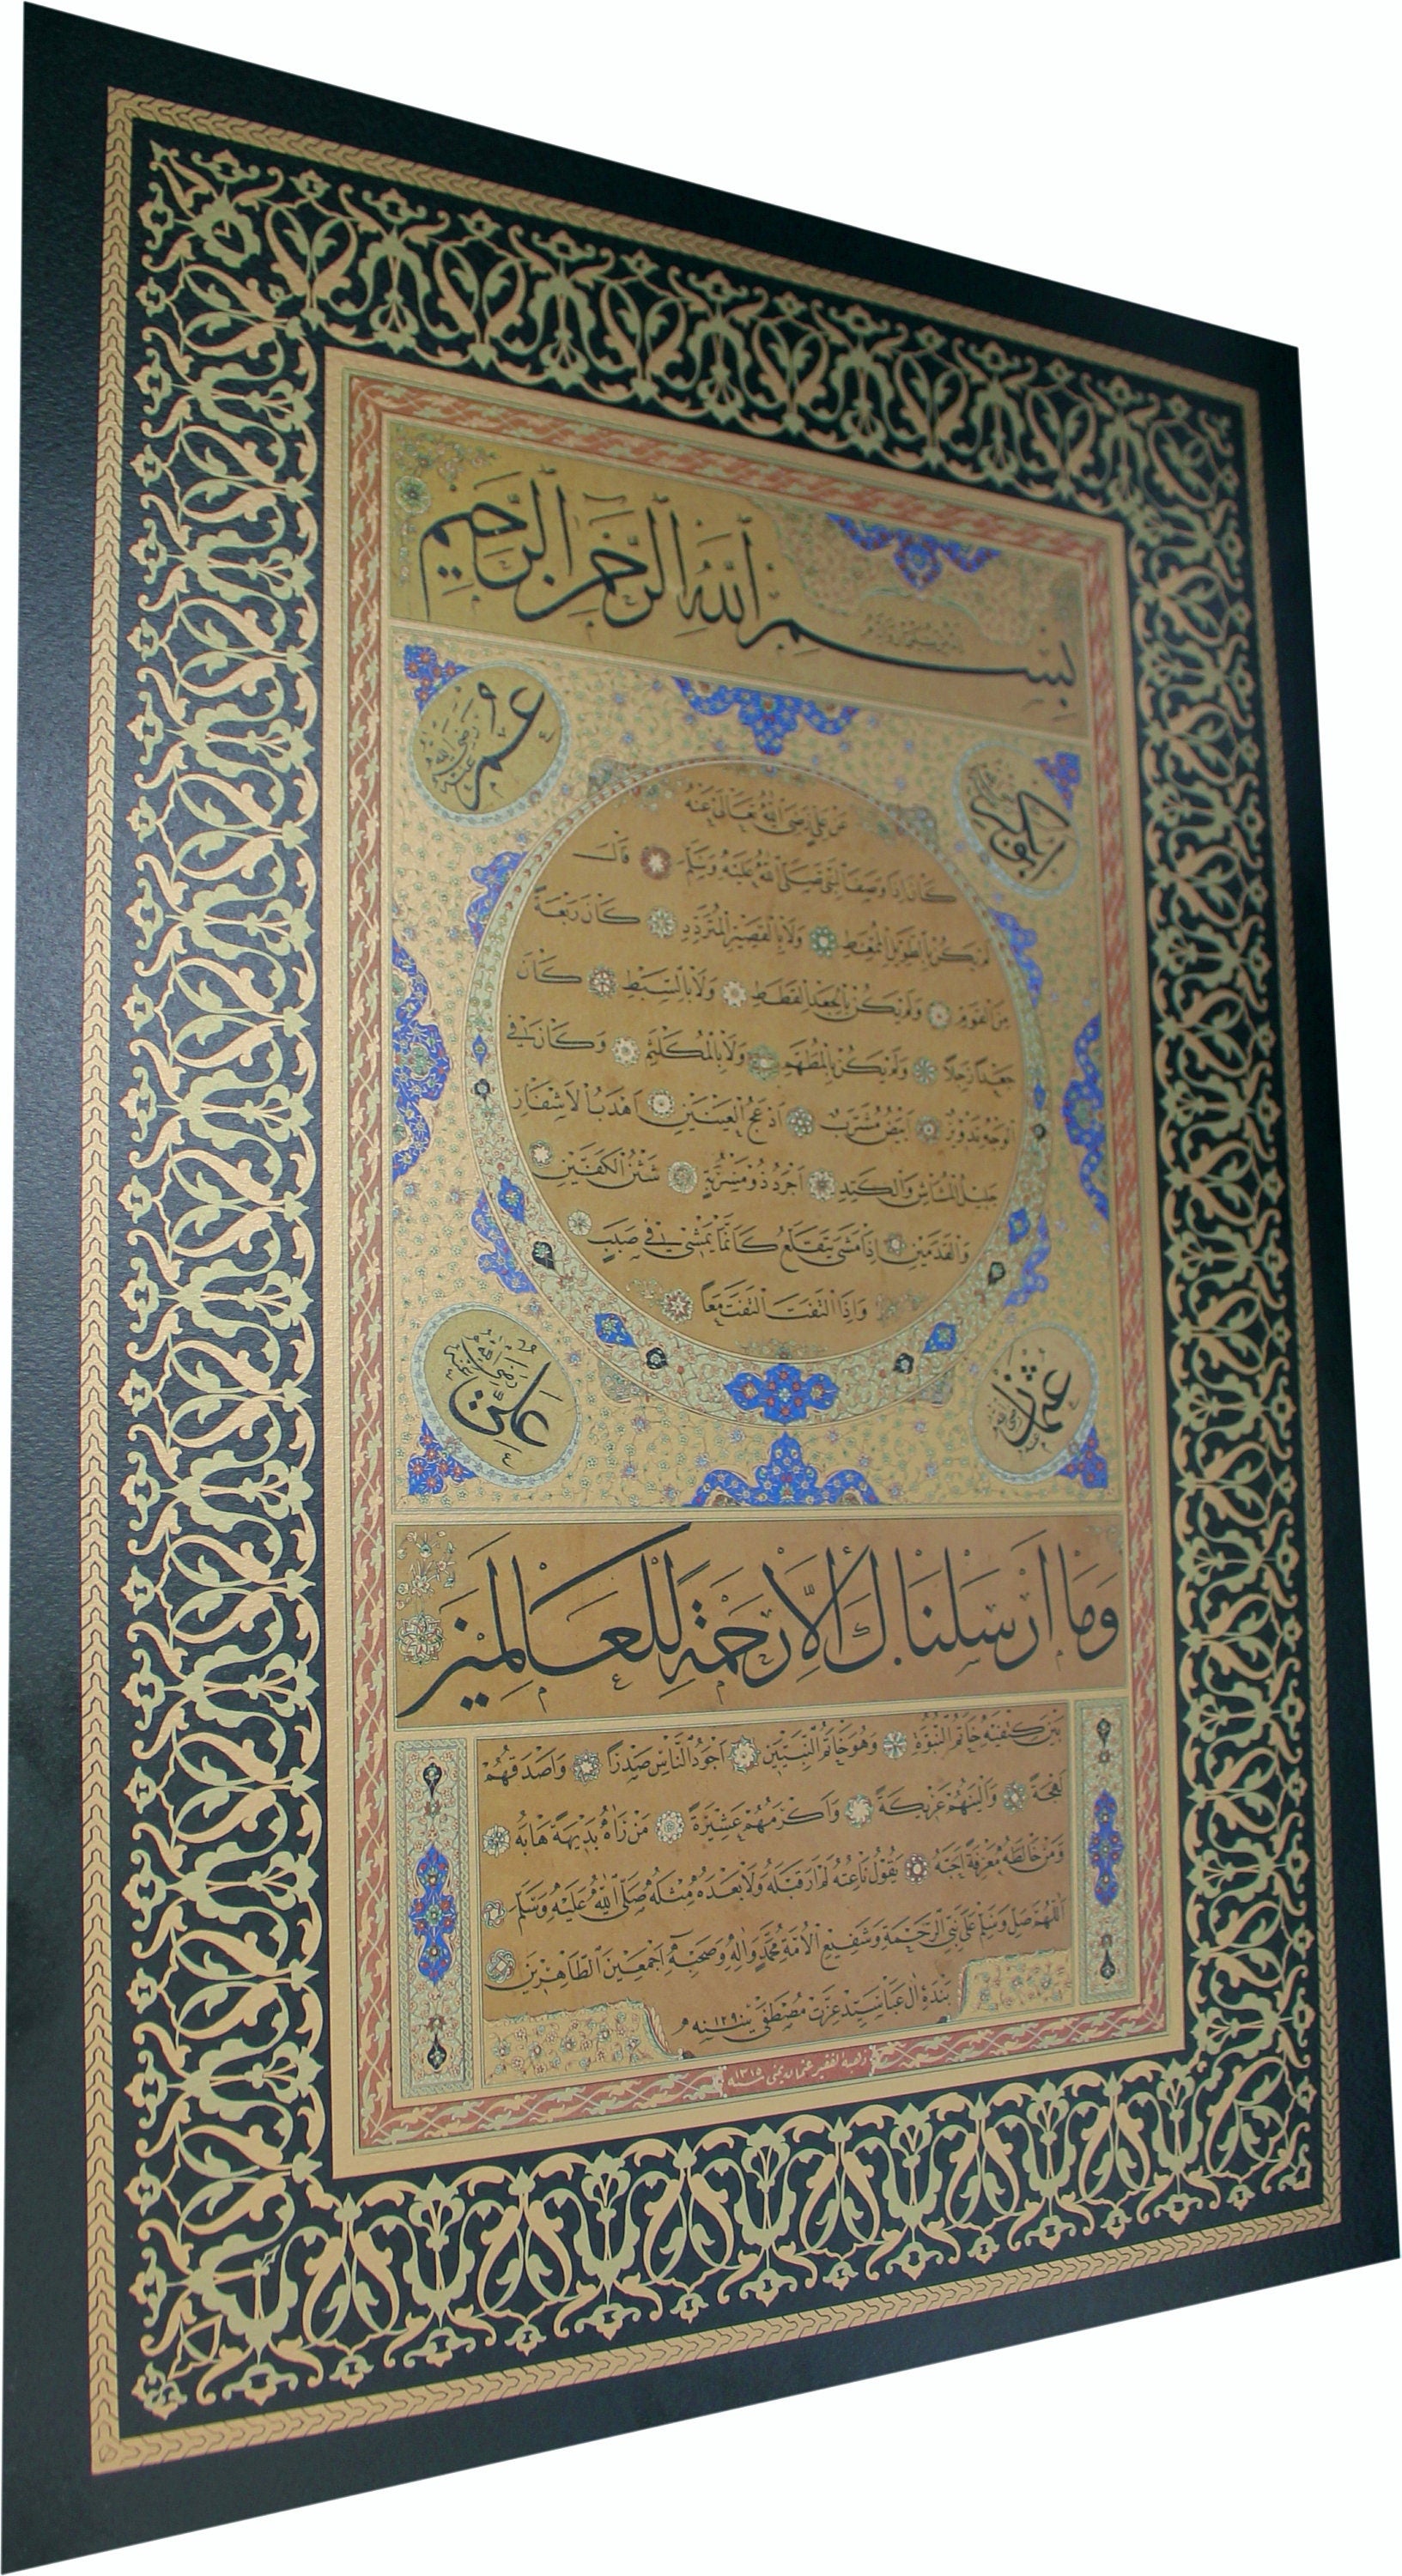 بِسْمِ اللّٰهِ الرَّحْمٰنِ الرَّحِيمِ
ابوبكر
عُمَر رضي الله عنه
عَنْ عَلِيٍّ رَضِيَ اللّٰهُ تَعَالٰى عَنْهُ
كَانَ اِذَا وَصَفَ النَّبِيَّ صَلَّى اللّٰهُ عَلَيْهِ وَسَلَّمَ قَالَ
لَمْ يَكُنْ بِالطَّوِيلِ الْمُمَغَّطِ وَلَا بِالْقَصِيرِ الْمُتَرَدِّدِ كَانَ رَبْعَةً
مِنَ الْقَوْمِ وَلَمْ يَكُنْ بِالْجَعْدِ الْقَطَطِ وَلَا بِالسَّبْطِ كَانَ
جَعْدًا رَجِلًا وَلَمْ يَكُنْ بِالْمُطَهَّمِ وَلَا بِالْمُكَلْثَمِ وَكَانَ فِى
الْوَجْهِ تَدْوِيرٌ اَبْيَضُ مُشْرَبٌ اَدْعَجُ الْعَيْنَيْنِ اَهْدَبُ الْاَشْفَارِ
جَلِيلُ الْمُشَاشِ وَالْكَتَدِ اَجْرَدُ ذُو مَسْرُبَةٍ شَثْنُ الْكَفَّيْنِ
وَالْقَدَمَيْنِ اِذَا مَشٰى يَتَقَلَّعُ كَاَنَّمَا يَمْشِى فِى صَبَبٍ
وَاِذَا الْتَفَتَ الْتَفَتَ مَعًا
عثمان رضي الله عنه
عَلِيّ رضي الله عنه
وَمَا اَرْسَلْنَاكَ اِلَّا رَحْمَةً لِلْعَالَمِينَ
بَيْنَ كَتِفَيْهِ خَاتَمُ النُّبُوَّةِ وَهُوَ خَاتَمُ النَّبِيِّينَ اَجْوَدُ النَّاسِ صَدْرًا وَاَصْدَقُهُمْ
لَهْجَةً وَاَلْيَنُهُمْ عَرِيكَةً وَاَكْرَمُهُمْ عَشِيرَةً مَنْ رَاٰهُ بَدِيهَةً هَابَهُ
وَمَنْ خَالَطَهُ مَعْرِفَةً اَحَبَّهُ يَقُولُ نَاعِتُهُ لَمْ اَرَ قَبْلَهُ وَلَا بَعْدَهُ مِثْلَهُ صَلَّى اللّٰهُ عَلَيْهِ وَسَلَّمَ
اَللّٰهُمَّ صَلِّ وَسَلِّمْ عَلٰى نَبِىِّ الرَّحْمَةِ وَشَفِيعِ الْاُمَّةِ مُحَمَّدٍ وَاٰلِهِ وَصَحْبِهِ اَجْمَعِينَ الطَّاهِرِينَ
بَنْدَۀ اٰلِ عَبَا سَيِّد عِزَّتْ مُصْطَفٰى سنه ١٢٩٠
ذهبه الفقير عثمان يمنى ١٣١٥ سنه